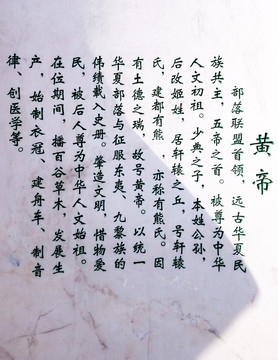 黄帝
部落联盟首领，远古华夏民
族共主，五帝之首。被尊为中华
人文初祖。少典之子，本姓公孙，
后改姬姓，居轩辕之丘，号轩辕
氏，建都有熊，亦称有熊氏。因
有土德之瑞，故号黄帝。以统一
华夏部落与征服东夷、九黎族的
伟绩载入史册。肇造文明，惜物爱
民，被后人尊为中华人文始祖。
在位期间，播百谷草木，发展生
产，始制衣冠、建舟车、制音
律、创医学等。